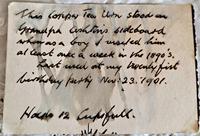 This Copper Tea Urn stood on
Grandpa Ashton's sideboard
when as a boy I visited him
at least once a week in the 1890's.
Last used at my twenty first
birthday party Nov: 23. 1901.
Holds 12 Cupsfull.